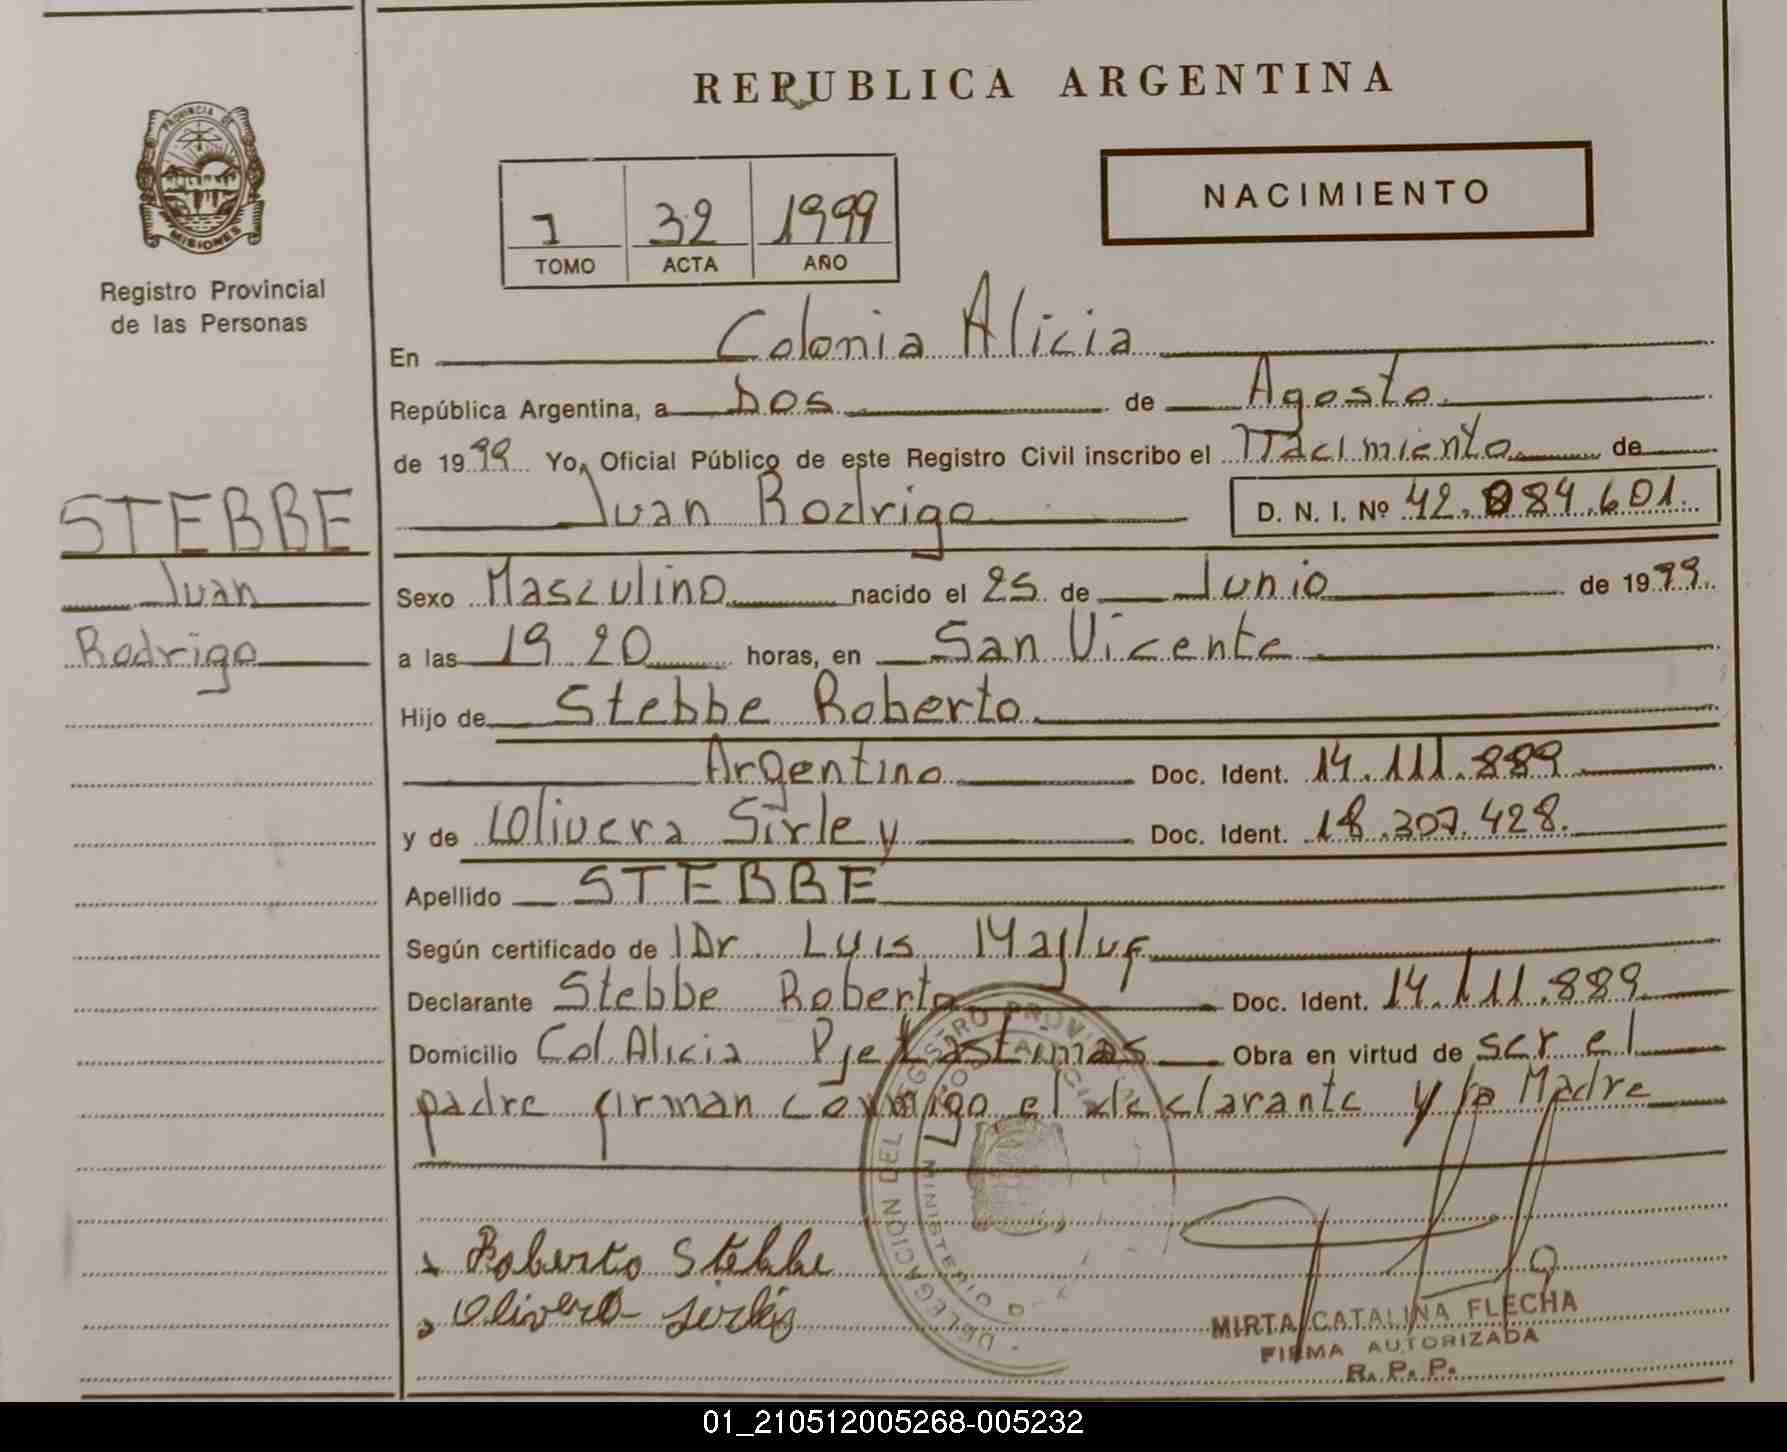 REPUBLICA ARGENTINA
PROVINCIA DE
MISIONES
Registro Provincial
de las Personas
1 32 1999
TOMO ACTA AÑO
NACIMIENTO
En Colonia Alicia
República Argentina, a Dos de Agosto
de 1999 Yo, Oficial Público de este Registro Civil inscribo el Nacimiento de
Juan Rodrigo D. N. I. Nº 42.084.601.
STEBBE
Juan
Rodrigo
Sexo Masculino nacido el 25 de Junio de 1999
a las 19 20 horas, en San Vicente
Hijo de Stebbe Roberto
Argentino Doc. Ident. 14.111.889
y de Olivera Sirley Doc. Ident. 18.307.428.
Apellido STEBBE
Según certificado de Dr. Luis
Declarante Stebbe Roberto Doc. Ident. 14.111.889
Domicilio Col. Alicia Pje Obra en virtud de ser el
padre firman conmigo el declarante y la Madre
DELEGACION DEL REGISTRO PROVINCIAL
MINISTERIO
Roberto Stebbe
Olivera Sirley
MIRTA CATALINA FLECHA
FIRMA AUTORIZADA
R. P. P.
01_210512005268-005232